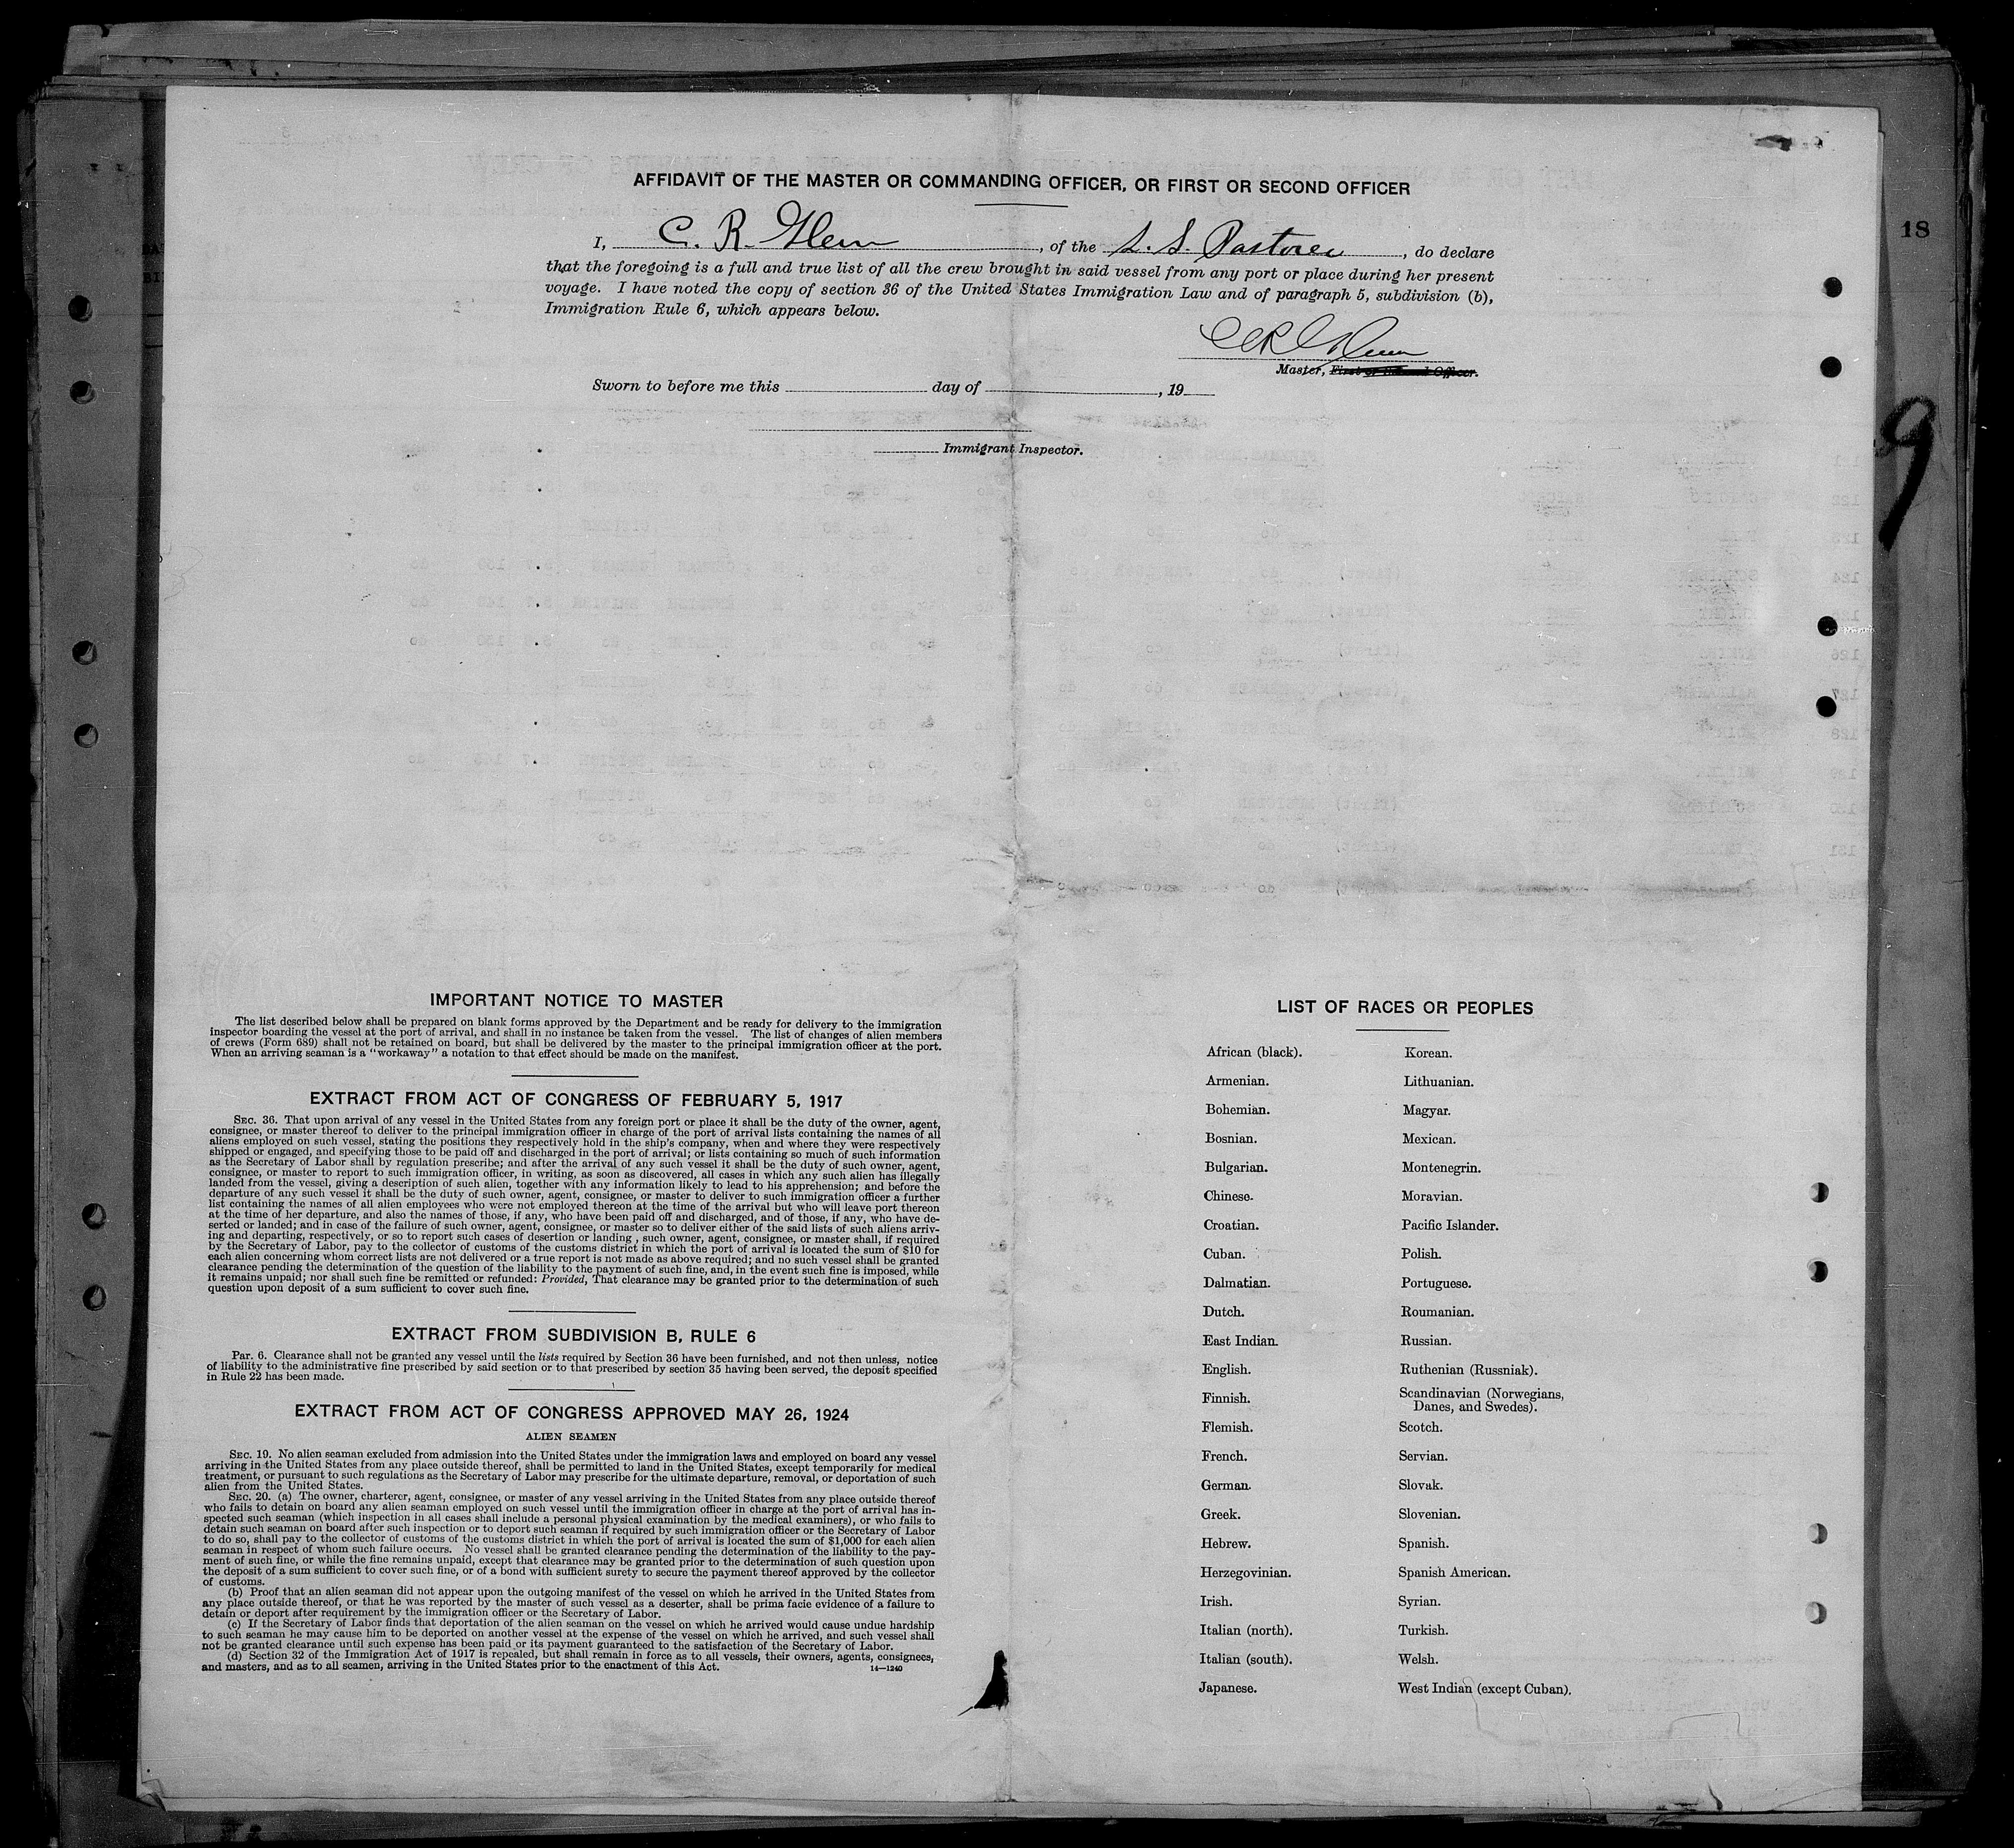 AFFIDAVIT OF THE MASTER OR COMMANDING OFFICER, OR FIRST OR SECOND OFFICER
I, C. R. Glenn, of the S. S. Pastores, do declare
that the foregoing is a full and true list of all the crew brought in said vessel from any port or place during her present
voyage. I have noted the copy of section 36 of the United States Immigration Law and of paragraph 5, subdivision (b),
Immigration Rule 6, which appears below.
C R Glenn
Master, First or Second Officer.
Sworn to before me this day of , 19
Immigrant Inspector.
18
9
IMPORTANT NOTICE TO MASTER
The list described below shall be prepared on blank forms approved by the Department and be ready for delivery to the immigration
inspector boarding the vessel at the port of arrival, and shall in no instance be taken from the vessel. The list of changes of alien members
of crews (Form 689) shall not be retained on board, but shall be delivered by the master to the principal immigration officer at the port.
When an arriving seaman is a "workaway" a notation to that effect should be made on the manifest.
EXTRACT FROM ACT OF CONGRESS OF FEBRUARY 5, 1917
SEC. 36. That upon arrival of any vessel in the United States from any foreign port or place it shall be the duty of the owner, agent,
consignee, or master thereof to deliver to the principal immigration officer in charge of the port of arrival lists containing the names of all
aliens employed on such vessel, stating the positions they respectively hold in the ship's company, when and where they were respectively
shipped or engaged, and specifying those to be paid off and discharged in the port of arrival; or lists containing so much of such information
as the Secretary of Labor shall by regulation prescribe; and after the arrival of any such vessel it shall be the duty of such owner, agent,
consignee, or master to report to such immigration officer, in writing, as soon as discovered, all cases in which any such alien has illegally
landed from the vessel, giving a description of such alien, together with any information likely to lead to his apprehension; and before the
departure of any such vessel it shall be the duty of such owner, agent, consignee, or master to deliver to such immigration officer a further
list containing the names of all alien employees who were not employed thereon at the time of the arrival but who will leave port thereon
at the time of her departure, and also the names of those, if any, who have been paid off and discharged, and of those, if any, who have de-
serted or landed; and in case of the failure of such owner, agent, consignee, or master so to deliver either of the said lists of such aliens arriv-
ing and departing, respectively, or so to report such cases of desertion or landing , such owner, agent, consignee, or master shall, if required
by the Secretary of Labor, pay to the collector of customs of the customs district in which the port of arrival is located the sum of $10 for
each alien concerning whom correct lists are not delivered or a true report is not made as above required; and no such vessel shall be granted
clearance pending the determination of the question of the liability to the payment of such fine, and, in the event such fine is imposed, while
it remains unpaid; nor shall such fine be remitted or refunded: Provided, That clearance may be granted prior to the determination of such
question upon deposit of a sum sufficient to cover such fine.
EXTRACT FROM SUBDIVISION B, RULE 6
Par. 6. Clearance shall not be granted any vessel until the lists required by Section 36 have been furnished, and not then unless, notice
of liability to the administrative fine prescribed by said section or to that prescribed by section 35 having been served, the deposit specified
in Rule 22 has been made.
EXTRACT FROM ACT OF CONGRESS APPROVED MAY 26, 1924
ALIEN SEAMEN
SEC. 19. No alien seaman excluded from admission into the United States under the immigration laws and employed on board any vessel
arriving in the United States from any place outside thereof, shall be permitted to land in the United States, except temporarily for medical
treatment, or pursuant to such regulations as the Secretary of Labor may prescribe for the ultimate departure, removal, or deportation of such
alien from the United States.
SEC. 20. (a) The owner, charterer, agent, consignee, or master of any vessel arriving in the United States from any place outside thereof
who fails to detain on board any alien seaman employed on such vessel until the immigration officer in charge at the port of arrival has in-
spected such seaman (which inspection in all cases shall include a personal physical examination by the medical examiners), or who fails to
detain such seaman on board after such inspection or to deport such seaman if required by such immigration officer or the Secretary of Labor
to do so, shall pay to the collector of customs of the customs district in which the port of arrival is located the sum of $1,000 for each alien
seaman in respect of whom such failure occurs. No vessel shall be granted clearance pending the determination of the liability to the pay-
ment of such fine, or while the fine remains unpaid, except that clearance may be granted prior to the determination of such question upon
the deposit of a sum sufficient to cover such fine, or of a bond with sufficient surety to secure the payment thereof approved by the collector
of customs.
(b) Proof that an alien seaman did not appear upon the outgoing manifest of the vessel on which he arrived in the United States from
any place outside thereof, or that he was reported by the master of such vessel as a deserter, shall be prima facie evidence of a failure to
detain or deport after requirement by the immigration officer or the Secretary of Labor.
(c) If the Secretary of Labor finds that deportation of the alien seaman on the vessel on which he arrived would cause undue hardship
to such seaman he may cause him to be deported on another vessel at the expense of the vessel on which he arrived, and such vessel shall
not be granted clearance until such expense has been paid or its payment guaranteed to the satisfaction of the Secretary of Labor.
(d) Section 32 of the Immigration Act of 1917 is repealed, but shall remain in force as to all vessels, their owners, agents, consignees,
and masters, and as to all seamen, arriving in the United States prior to the enactment of this Act.
14—1240
LIST OF RACES OR PEOPLES
African (black).
Armenian.
Bohemian.
Bosnian.
Bulgarian.
Chinese.
Croatian.
Cuban.
Dalmatian.
Dutch.
East Indian.
English.
Finnish.
Flemish.
French.
German.
Greek.
Hebrew.
Herzegovinian.
Irish.
Italian (north).
Italian (south).
Japanese.
Korean.
Lithuanian.
Magyar.
Mexican.
Montenegrin.
Moravian.
Pacific Islander.
Polish.
Portuguese.
Roumanian.
Russian.
Ruthenian (Russniak).
Scandinavian (Norwegians,
Danes, and Swedes).
Scotch.
Servian.
Slovak.
Slovenian.
Spanish.
Spanish American.
Syrian.
Turkish.
Welsh.
West Indian (except Cuban).